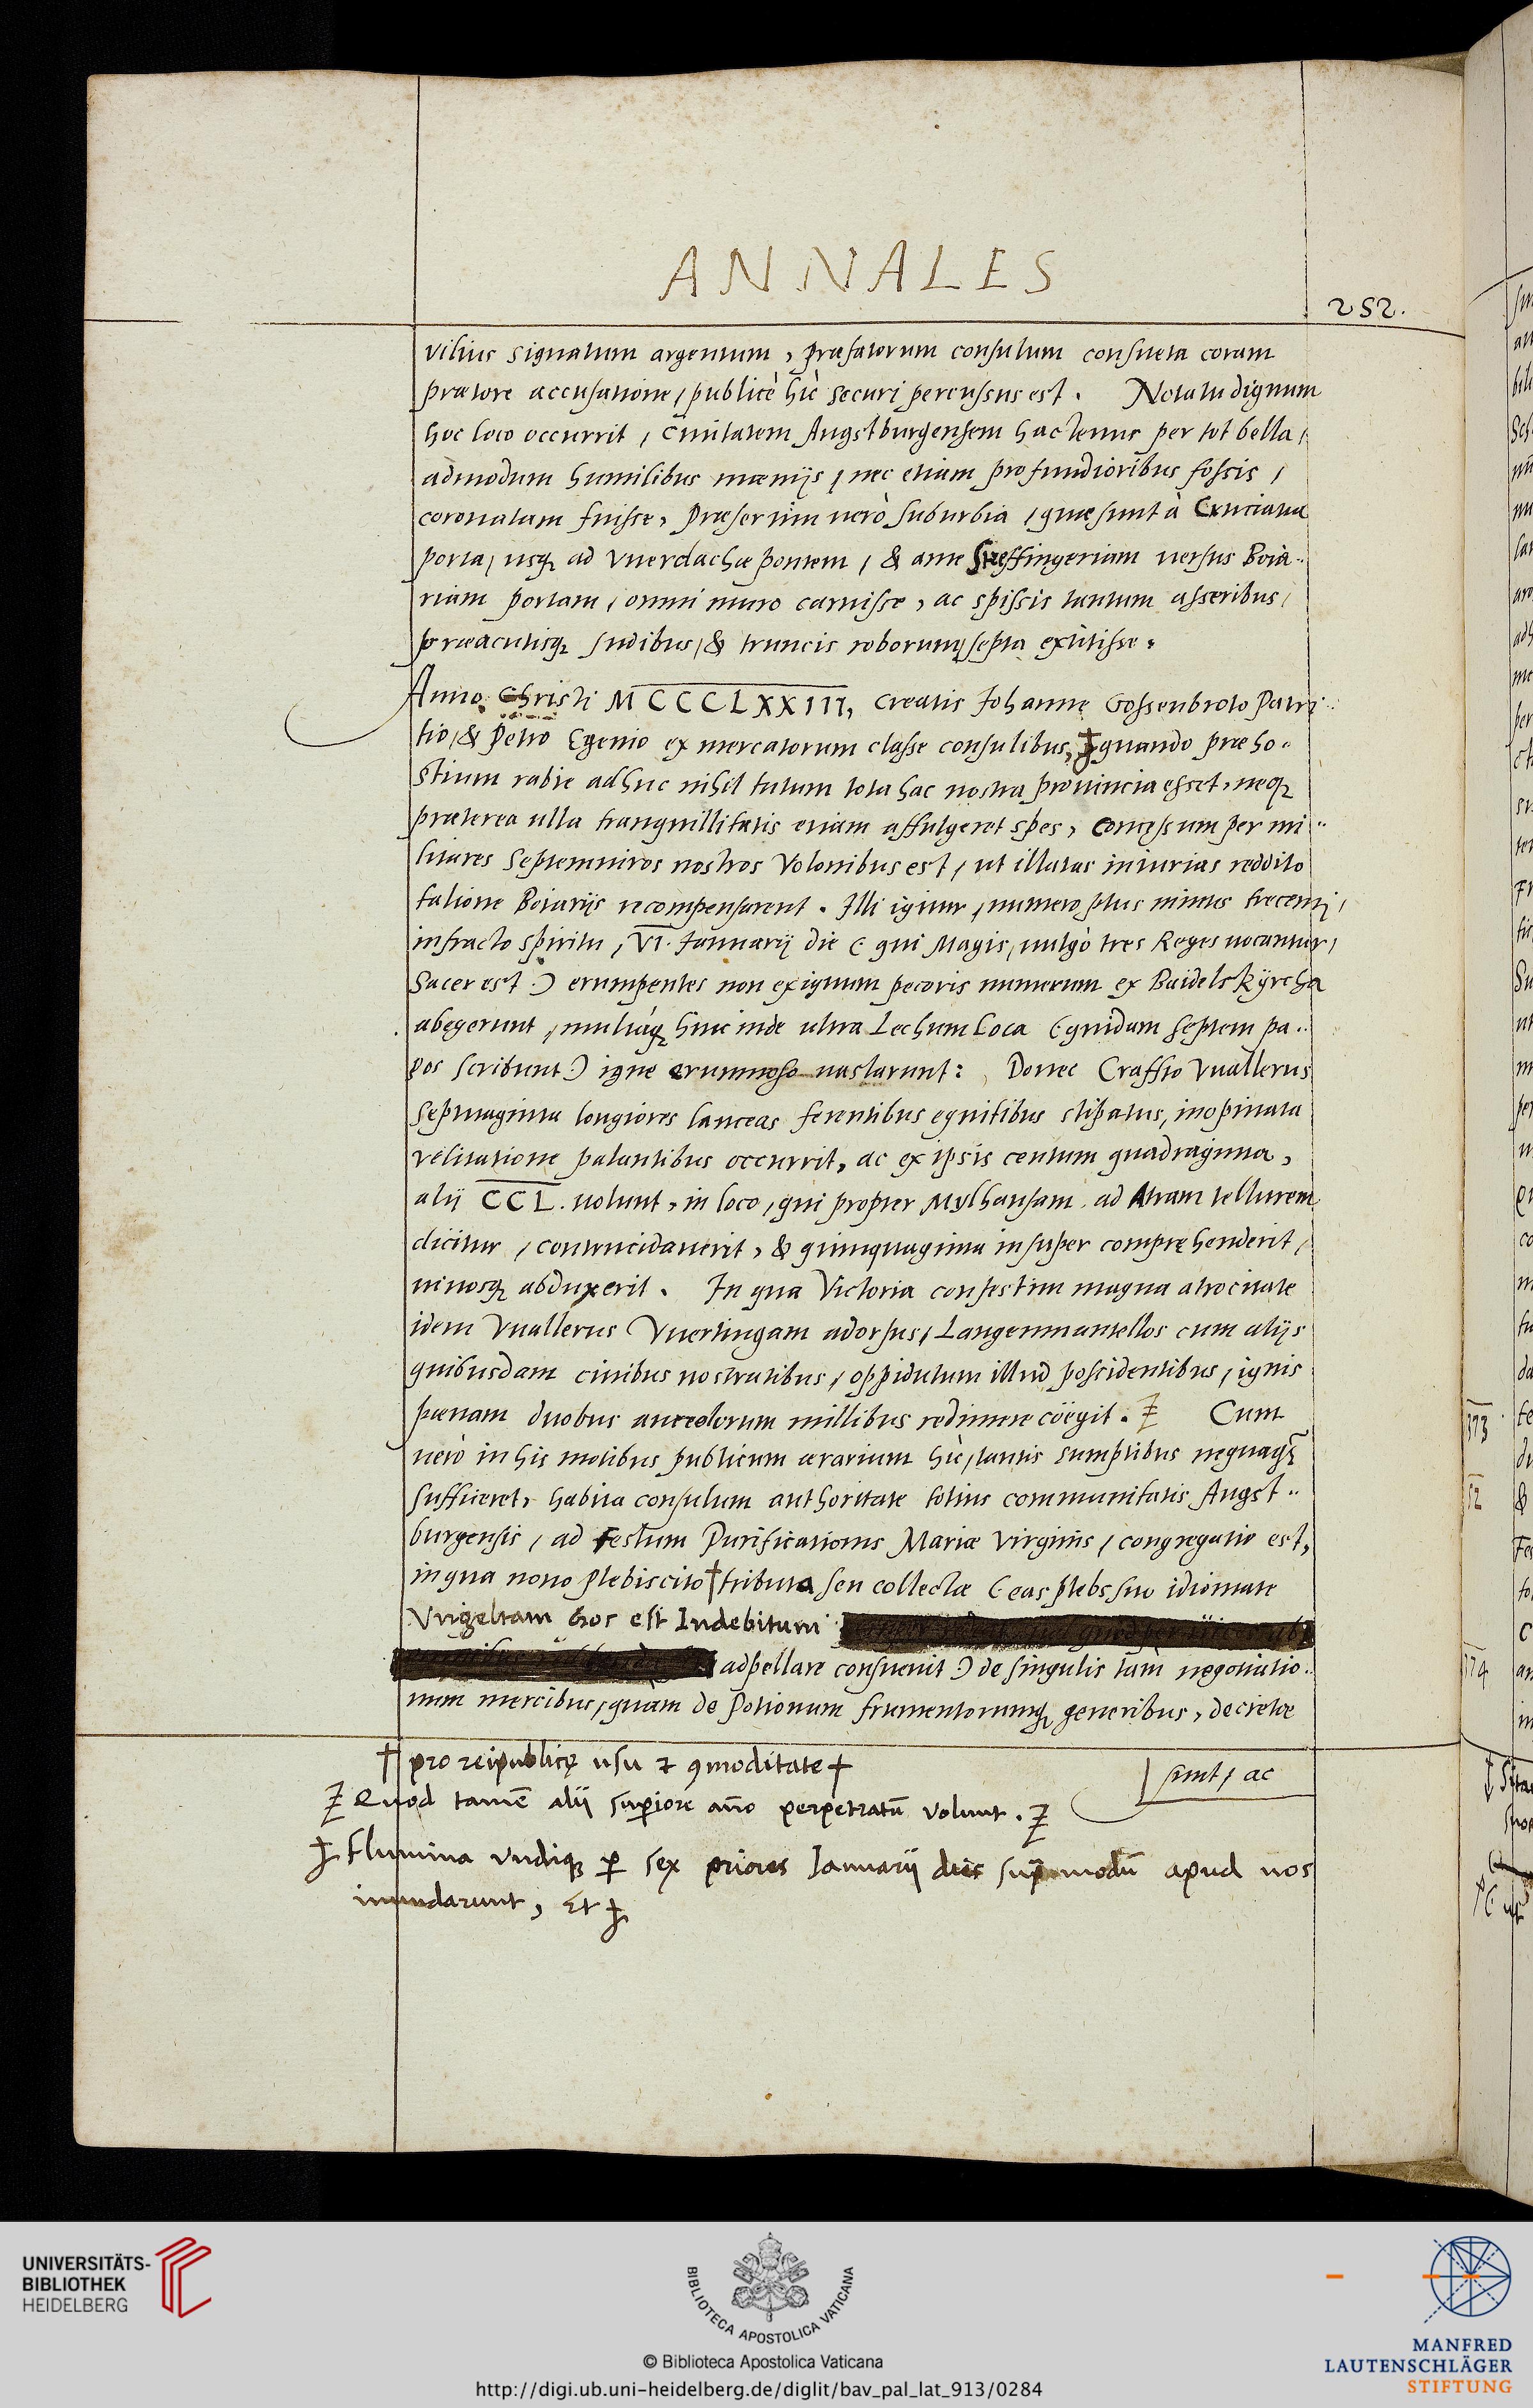 ANNALES
252.
vilius signatum argentum, præfatorum consulum consueta coram
prætore accusatione, publicè hìc securi percussus est. Notatu dignum
hoc loco occurrit, ciuitatem Augstburgensem hactenus per tot bella,
admodum humilibus mœnijs, nec etiam profundioribus fossis,
coronatam fuisse, Præsertim uerò suburbia, quæ sunt à Cruciana
porta, usq; ad Vuerdachæ pontem, & ante Streffingeriam uersus Boia-
riam portam, omni muro caruisse, ac spissis tantum asseribus,
præacutisq; sudibus, & truncis roborum, septa extitisse.
Anno Christi MCCCLXXIII, creatis Johanne Gossenbroto Patri-
tio, & Petro Egenio ex mercatorum classe consulibus, ‡ quando præ ho-
stium rabie adhuc nihil tutum tota hac nostra prouincia esset, neq;
præterea ulla tranquillitatis etiam affulgeret spes, concessum per mi-
litares Septemuiros nostros Volonibus est, ut illatas iniurias reddito
talione Boiarijs recompensarent. Illi igitur, numero plus minus trecenti,
infracto spiritu, VI. Januarij die (qui Magis, uulgò tres Reges uocantur,
Sacer est) erumpentes non exiguum pecoris numerum ex Baidelskÿrcha
abegerunt, multáq; hinc inde ultra Lechum loca (quidam septem pa-
gos scribunt) igne ærumnoso uastarunt: Donec Craffto Vuallerus
septuaginta longiores lanceas ferentibus equitibus stipatus, inopinata
velitatione palantibus occurrit, ac ex ipsis centum quadraginta,
alij CCL. uolunt, in loco, qui propter Mylhausam, ad Atram tellurem
dicitur, contrucidauerit, & quinquaginta insuper compręhenderit,
uinosq; abduxerit. In qua Victoria confestim magna atrocitate
idem Vuallerus Vuertingam adorsus, Langenmantellos cum alijs
quibusdam ciuibus nostratibus, oppidulum illud possidentibus, ignis
pœnam duobus aureolorum millibus redimere cöegit. Ƶ Cum
uerò in his motibus publicum ærarium hìc, tantis sumptibus nequaq̃
sufficeret, habita consulum authoritate totius communitatis Augst-
burgensis, ad festum Purificationis Mariæ Virginis, congregatio est,
in qua nouo plebiscito † tributa seu collectæ (eas plebs suo idiomate
Vngeltam hoc est Indebitum
adpellare consueuit) de singulis tàm negotiatio-
num mercibus, quàm de potionum frumentorumq; generibus, decretæ
sunt, ac
† pro reipublicę usu & ꝯmoditate †
Ƶ Quod tamē alij superiore año perpetratū volunt. Ƶ
‡ Flumina vndiq; ꝑ sex priores Ianuarij dies supͣmodū apud nos
inundarunt, Et ‡
373
52
374
UNIVERSITÄTS-
BIBLIOTHEK
HEIDELBERG
BIBLIOTECA APOSTOLICA VATICANA
© Biblioteca Apostolica Vaticana
http://digi.ub.uni-heidelberg.de/diglit/bav_pal_lat_913/0284
MANFRED
LAUTENSCHLÄGER
STIFTUNG